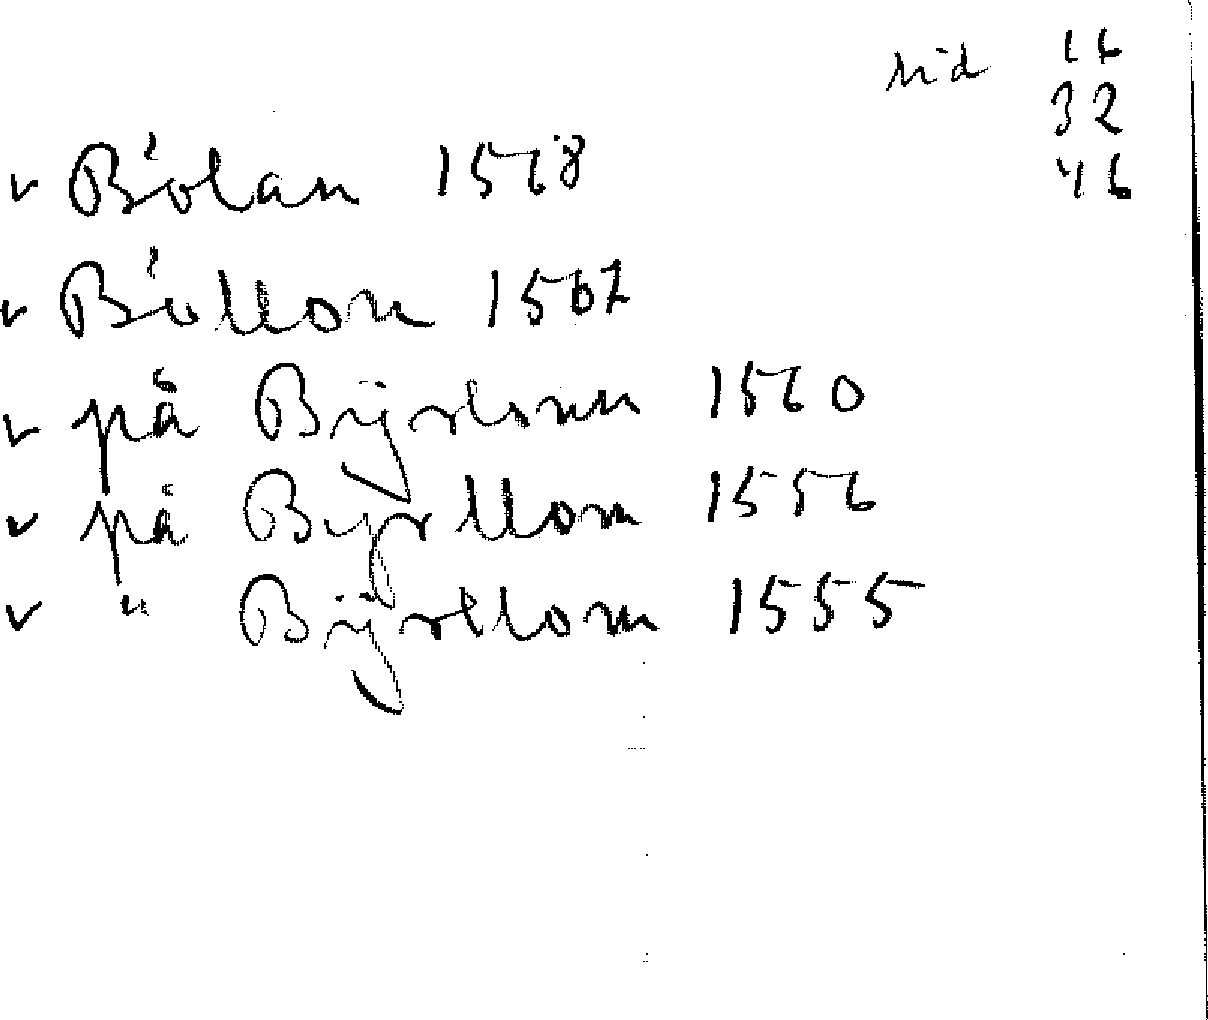 sid 16
32
46
v Bölan 1568
v Böllom 1567
v på Bijrlomm 1560
v på Byrllom 1556
v " Bijrellom 1555